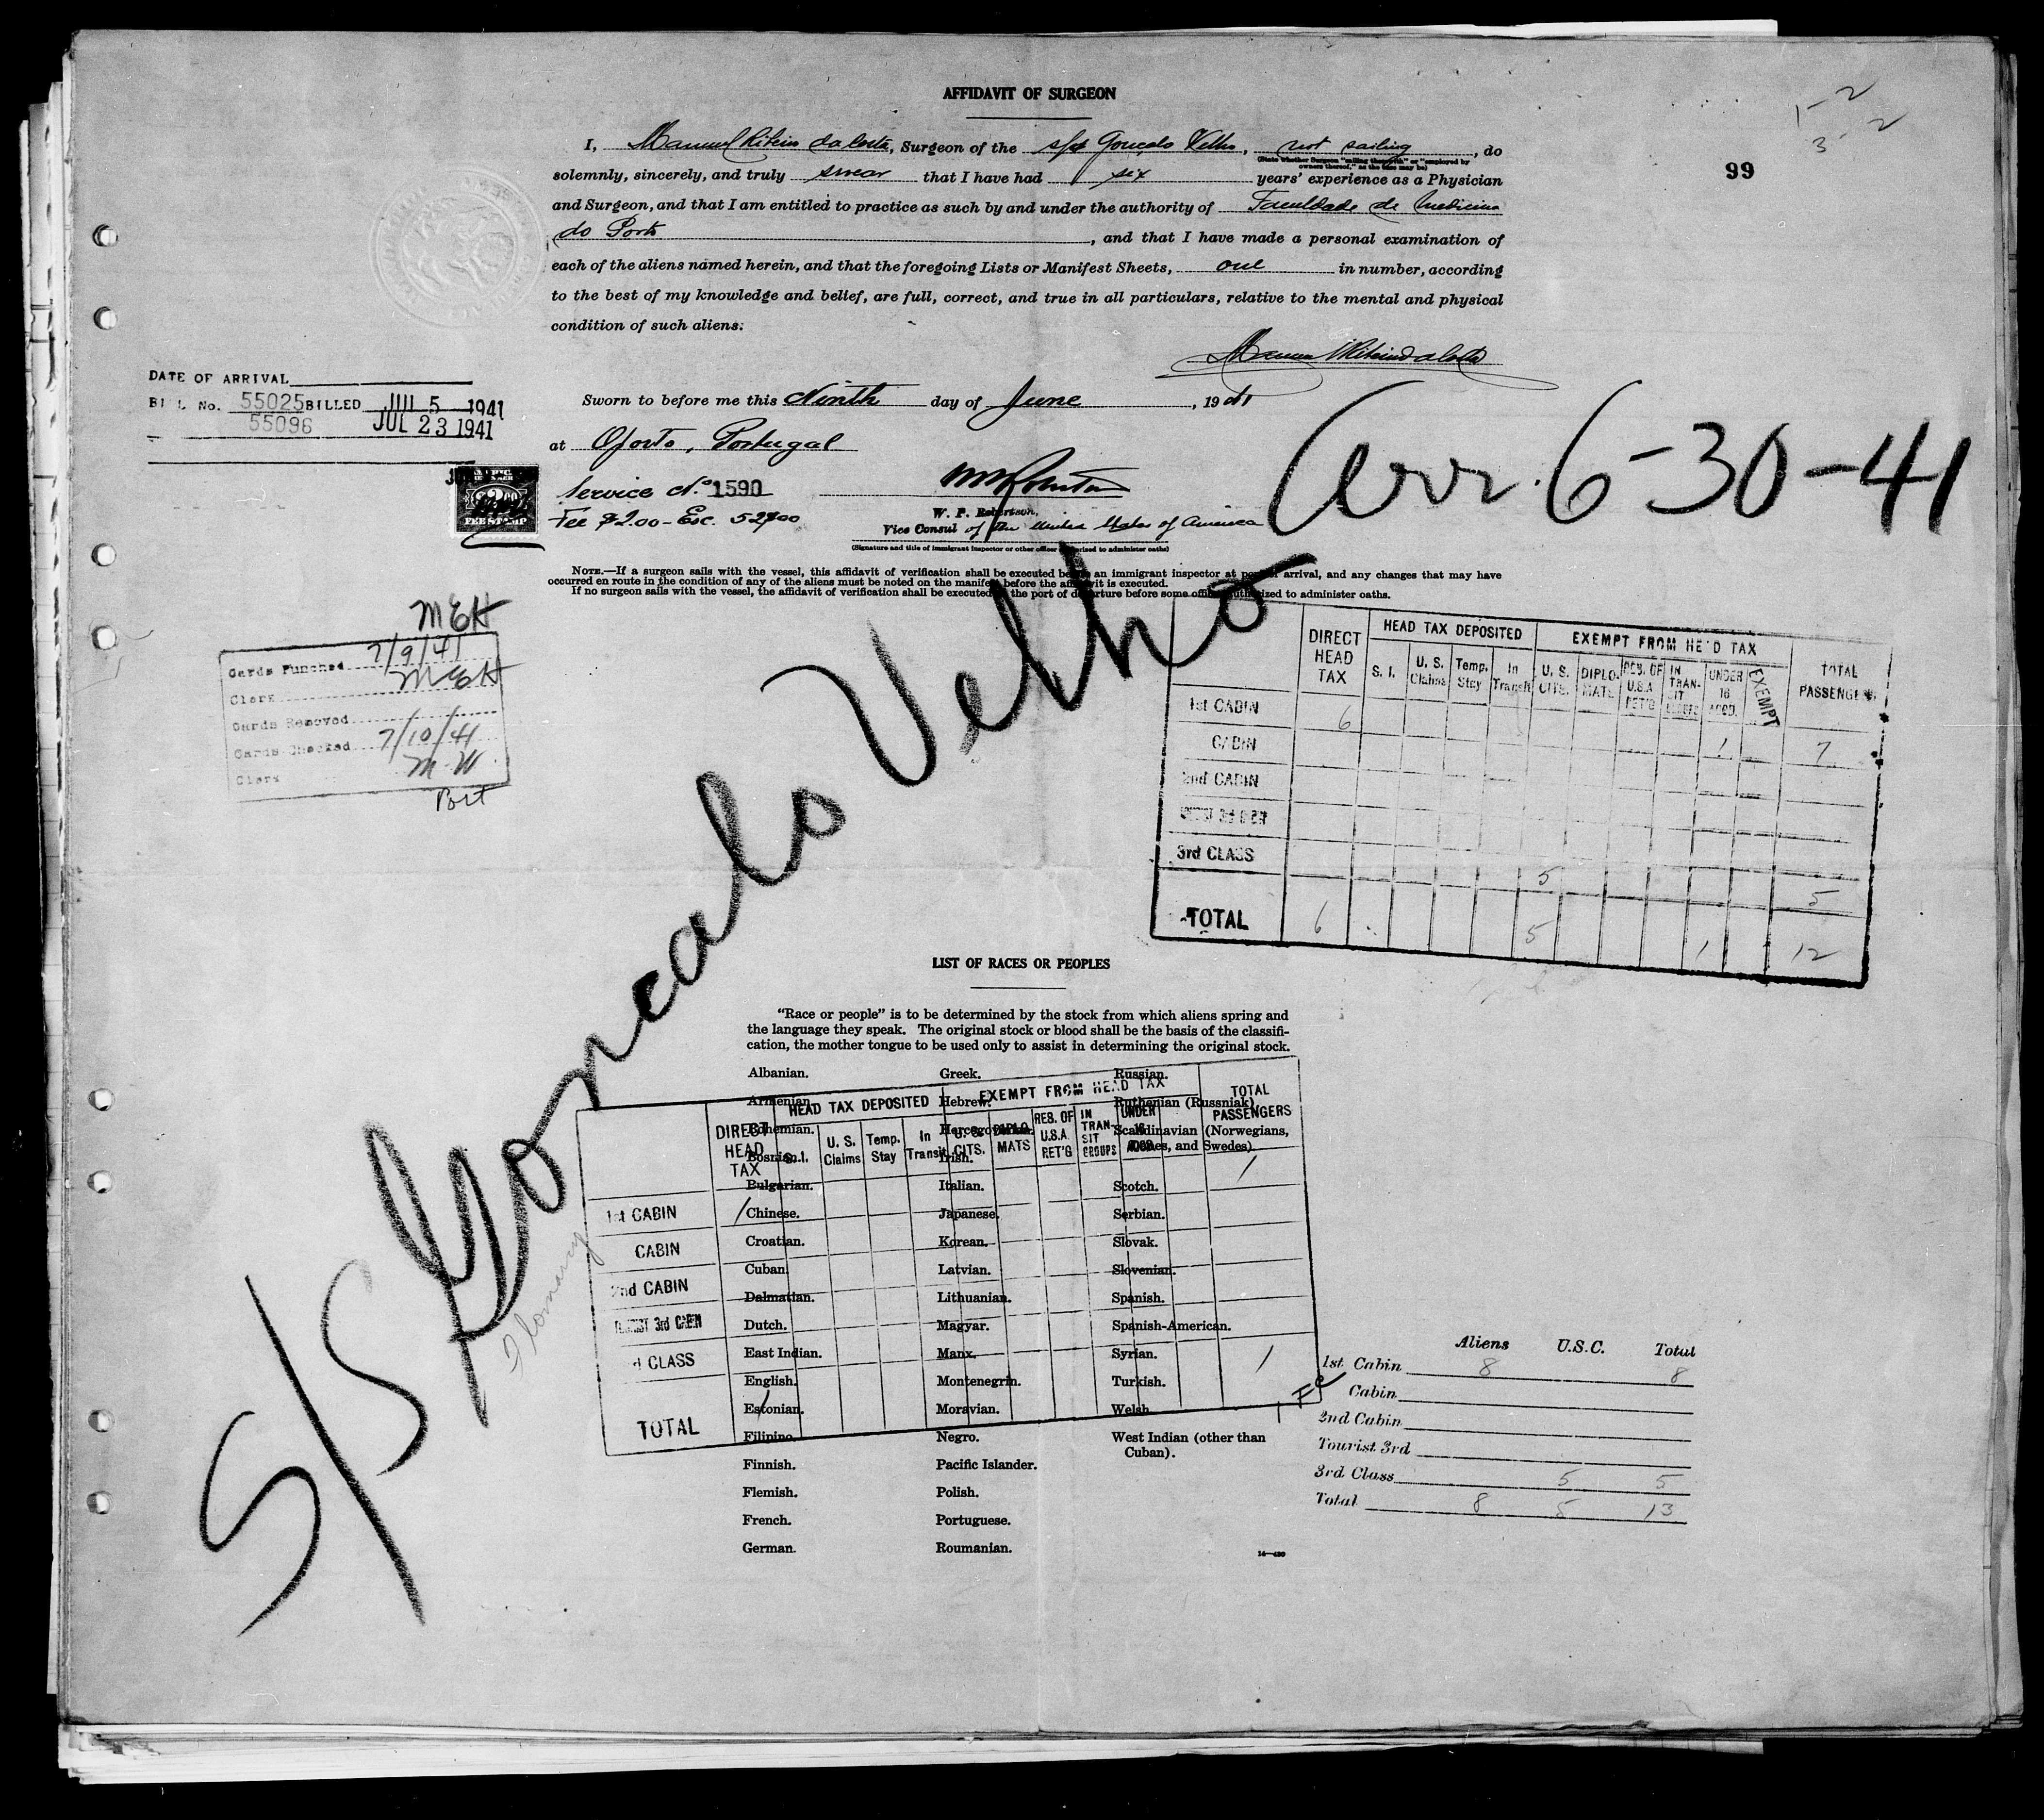 AFFIDAVIT OF SURGEON
99
I, Manuel Ribeiro da Costa, Surgeon of the s/s Gonçalo Velho, not sailing, do
(State whether Surgeon "sailing therewith" or "employed by owners thereof," as the case may be)
solemnly, sincerely, and truly swear that I have had six years' experience as a Physician
and Surgeon, and that I am entitled to practice as such by and under the authority of Faculdade de Medicina
do Porto, and that I have made a personal examination of
each of the aliens named herein, and that the foregoing Lists or Manifest Sheets, one in number, according
to the best of my knowledge and belief, are full, correct, and true in all particulars, relative to the mental and physical
condition of such aliens.
Manuel Ribeiro da Costa
DATE OF ARRIVAL
BILL No. 55025 BILLED JUL 5 1941
55096 JUL 23 1941
Sworn to before me this Ninth day of June, 1941
at Oporto, Portugal
Arr. 6-30-41
Service No. 1590
Fee $2.00 - Esc. 52$00
FEE STAMP
W. P. Robertson,
Vice Consul of the United States of America
(Signature and title of immigrant inspector or other officer authorized to administer oaths)
NOTE.—If a surgeon sails with the vessel, this affidavit of verification shall be executed before an immigrant inspector at port of arrival, and any changes that may have
occurred en route in the condition of any of the aliens must be noted on the manifest before the affidavit is executed.
If no surgeon sails with the vessel, the affidavit of verification shall be executed at the port of departure before some officer authorized to administer oaths.
MEH
Cards Punched 7/9/41
Clerk MEH
Cards Removed
Cards Checked 7/10/41
Clerk M.W.
S/S Goncalo Velho
DIRECT HEAD TAX
HEAD TAX DEPOSITED
EXEMPT FROM HEAD TAX
TOTAL PASSENGERS
S. I.
U. S. Claims
Temp. Stay
In Transit
U. S. CITS.
DIPLOMATS
RES. OF U.S.A. RET'G
IN TRANSIT GROUPS
UNDER 16 ACCD.
EXEMPT
1st CABIN 6
CABIN 1 7
2nd CABIN
TOURIST 3rd CABIN
3rd CLASS
5 5
TOTAL 6 5 1 12
LIST OF RACES OR PEOPLES
"Race or people" is to be determined by the stock from which aliens spring and
the language they speak. The original stock or blood shall be the basis of the classifi-
cation, the mother tongue to be used only to assist in determining the original stock.
Albanian.
Armenian.
Bohemian.
Bosnian.
Bulgarian.
Chinese.
Croatian.
Cuban.
Dalmatian.
Dutch.
East Indian.
English.
Estonian.
Filipino.
Finnish.
Flemish.
French.
German.
Greek.
Hebrew.
Hercegovinian.
Irish.
Italian.
Japanese.
Korean.
Latvian.
Lithuanian.
Magyar.
Manx.
Montenegrin.
Moravian.
Negro.
Pacific Islander.
Polish.
Portuguese.
Roumanian.
Russian.
Ruthenian (Russniak).
Scandinavian (Norwegians,
Danes, and Swedes).
Scotch.
Serbian.
Slovak.
Slovenian.
Spanish.
Spanish-American.
Syrian.
Turkish.
Welsh.
West Indian (other than
Cuban).
DIRECT HEAD TAX
HEAD TAX DEPOSITED
EXEMPT FROM HEAD TAX
TOTAL PASSENGERS
S. I.
U. S. Claims
Temp. Stay
In Transit
U. S. CITS.
DIPLOMATS
RES. OF U.S.A. RET'G
IN TRANSIT GROUPS
UNDER 16 ACCD.
1st CABIN 1 1
CABIN
2nd CABIN
TOURIST 3rd CABIN
3rd CLASS
TOTAL 1 1
Aliens U.S.C. Total
1st. Cabin 8 8
Cabin
2nd Cabin
Tourist 3rd
3rd Class 5 5
Total 8 5 13